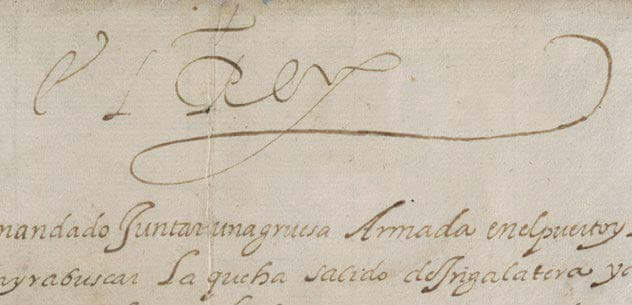 el Rey
mandado Juntar una gruesa Armada en el puerto y
ayr a buscar La que ha salido de Ingalatera ya